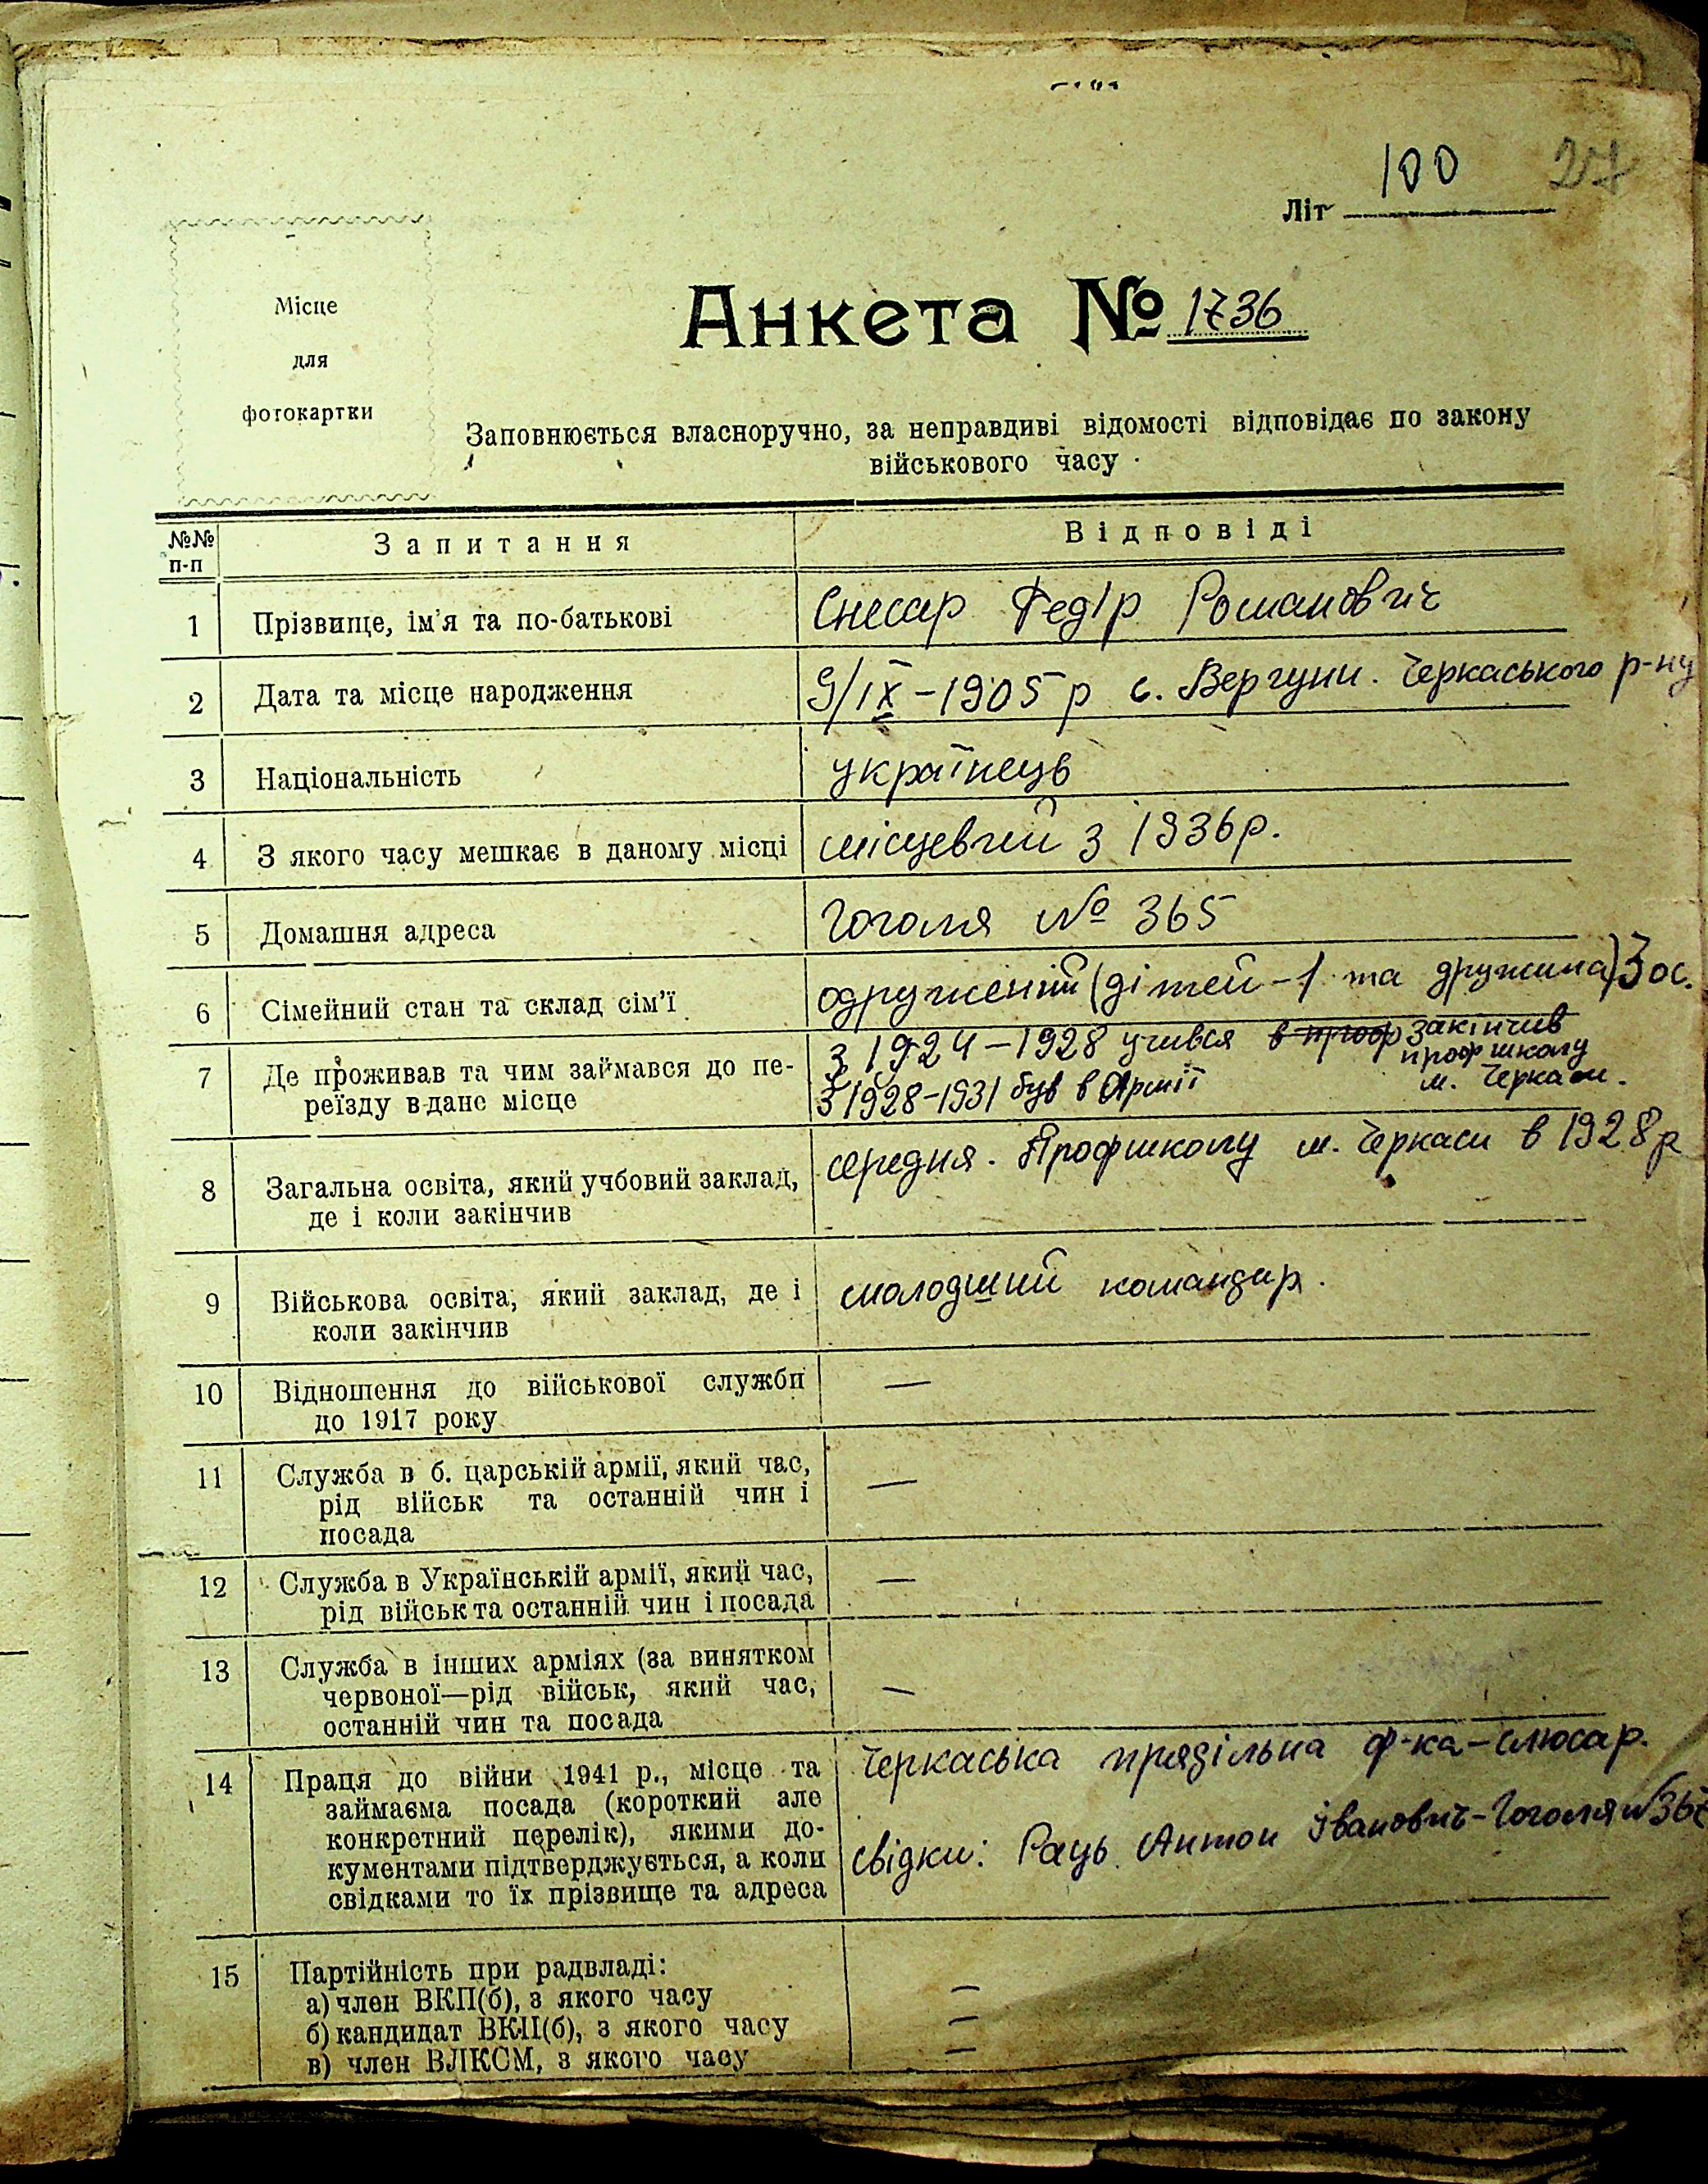 100 27
Літ
Місце
для
фотокартки
Анкета № 1736
Заповнюється власноручно, за неправдиві відомості відповідає по закону
військового часу
№№ п-п Запитання Відповіді
1 Прізвище, ім'я та по-батькові Снесар Федір Романович
2 Дата та місце народження 9/IX-1905 р с. Вергуни. Черкаського р-ну
3 Національність українець
4 З якого часу мешкає в даному місці місцевий з 1936 р.
5 Домашня адреса Гоголя № 365
6 Сімейний стан та склад сім'ї одружений (дітей-1 та дружина) 3 ос.
7 Де проживав та чим займався до пе- з 1924-1928 учився в проф закінчив
профшколу
реїзду в дане місце з 1928-1931 був в Армії м. Черкаси.
8 Загальна освіта, який учбовий заклад, середня. Профшколу м. Черкаси в 1928 р
де і коли закінчив
9 Військова освіта, який заклад, де і молодший командир.
коли закінчив
10 Відношення до військової служби —
до 1917 року
11 Служба в б. царській армії, який час, —
рід військ та останній чин і
посада
12 Служба в Українській армії, який час, —
рід військ та останній чин і посада
13 Служба в інших арміях (за винятком
червоної—рід військ, який час, —
останній чин та посада
14 Праця до війни 1941 р., місце та Черкаська прядільна ф-ка-слюсар.
займаєма посада (короткий але
конкретний перелік), якими до-
кументами підтверджується, а коли свідки: Раць Антон Іванович-Гоголя №
свідками то їх прізвище та адреса
15 Партійність при радвладі:
а) член ВКП(б), з якого часу —
б) кандидат ВКП(б), з якого часу —
в) член ВЛКСМ, з якого часу —